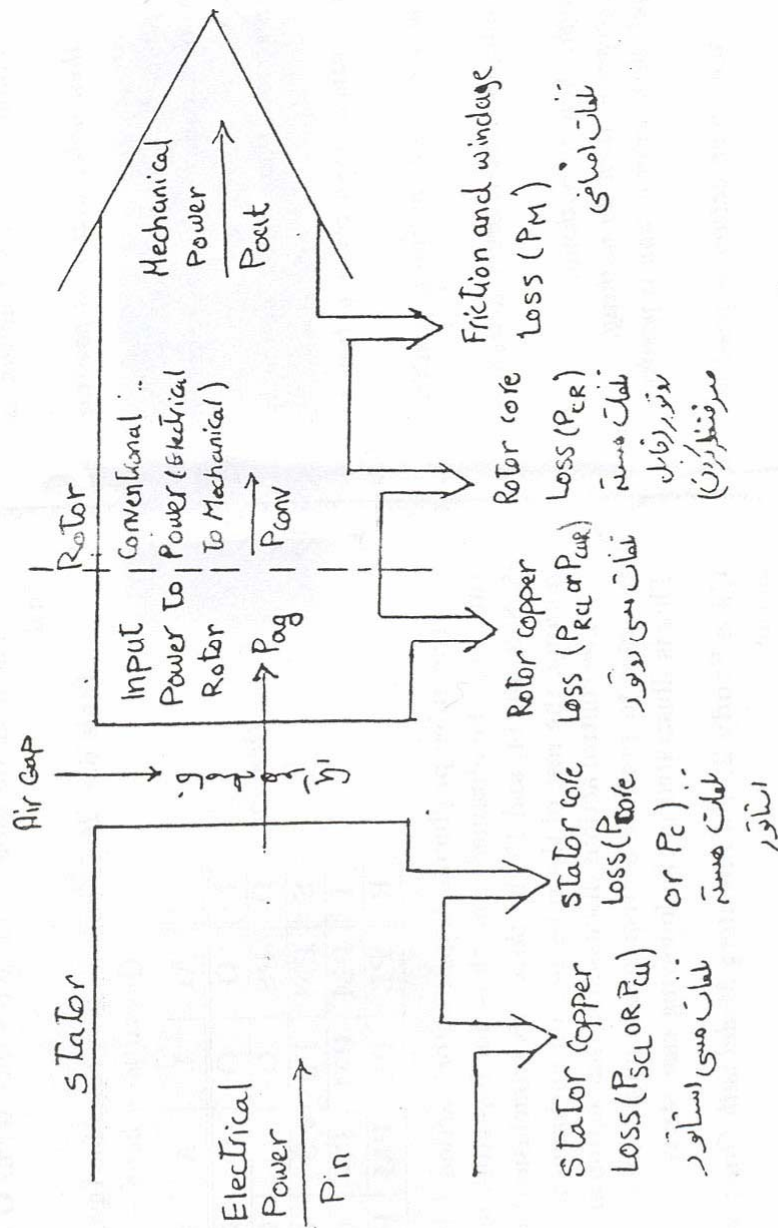 Stator
Air Gap
Rotor
Electrical
Power
Pin
فاصله هوایی
Input
Power to
Rotor
Pag
Conventional
Power (Electrical
to Mechanical)
Pconv
Mechanical
Power
Pout
Stator copper
Loss (PSCL OR PCu)
تلفات مسی استاتور
Stator core
Loss (Pcore
or Pc)
تلفات هسته
استاتور
Rotor copper
Loss (PRCL or PCuR)
تلفات مسی روتور
Rotor core
Loss (PCR)
تلفات هسته
روتور (قابل
صرفنظر کردن)
Friction and windage
Loss (PM)
تلفات اضافی